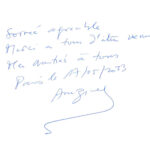 Soirée agréable
Merci à tous d'être venu
Mes amitiés à tous
Paris le 17/05/2013